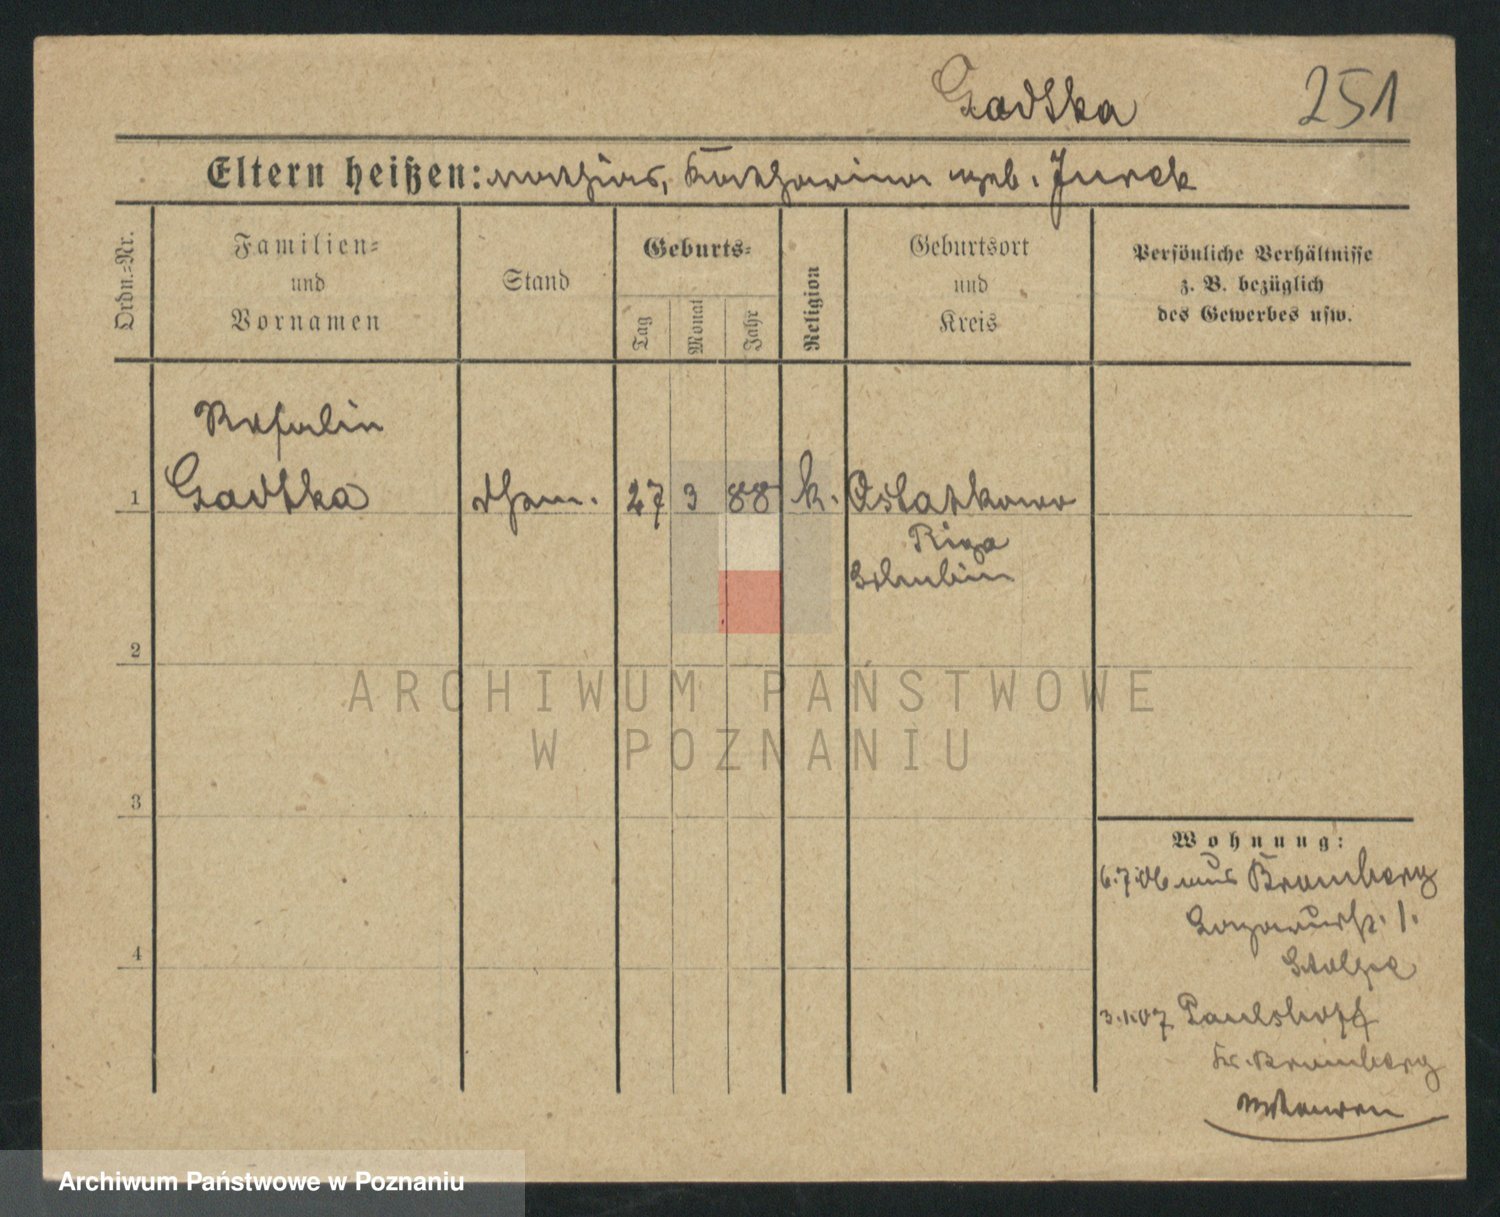 Gadtka 251
Eltern heißen: Mathias, Katharina geb. Jurek
Ordn.=Nr.
Familien=
und
Vornamen
Stand
Geburts=
Tag
Monat
Jahr
Religion
Geburtsort
und
Kreis
Persönliche Verhältnisse
z. B. bezüglich
des Gewerbes usw.
Rosalie
1 Gadtka 27 3 88 k. Ostatkowo
Riga
Schubin
2
ARCHIWUM PAŃSTWOWE
W POZNANIU
3
Wohnung:
6.7.06 aus Bromberg
1.
4
3.1.07 Paulshoff
Kr. Bromberg
Archiwum Państwowe w Poznaniu